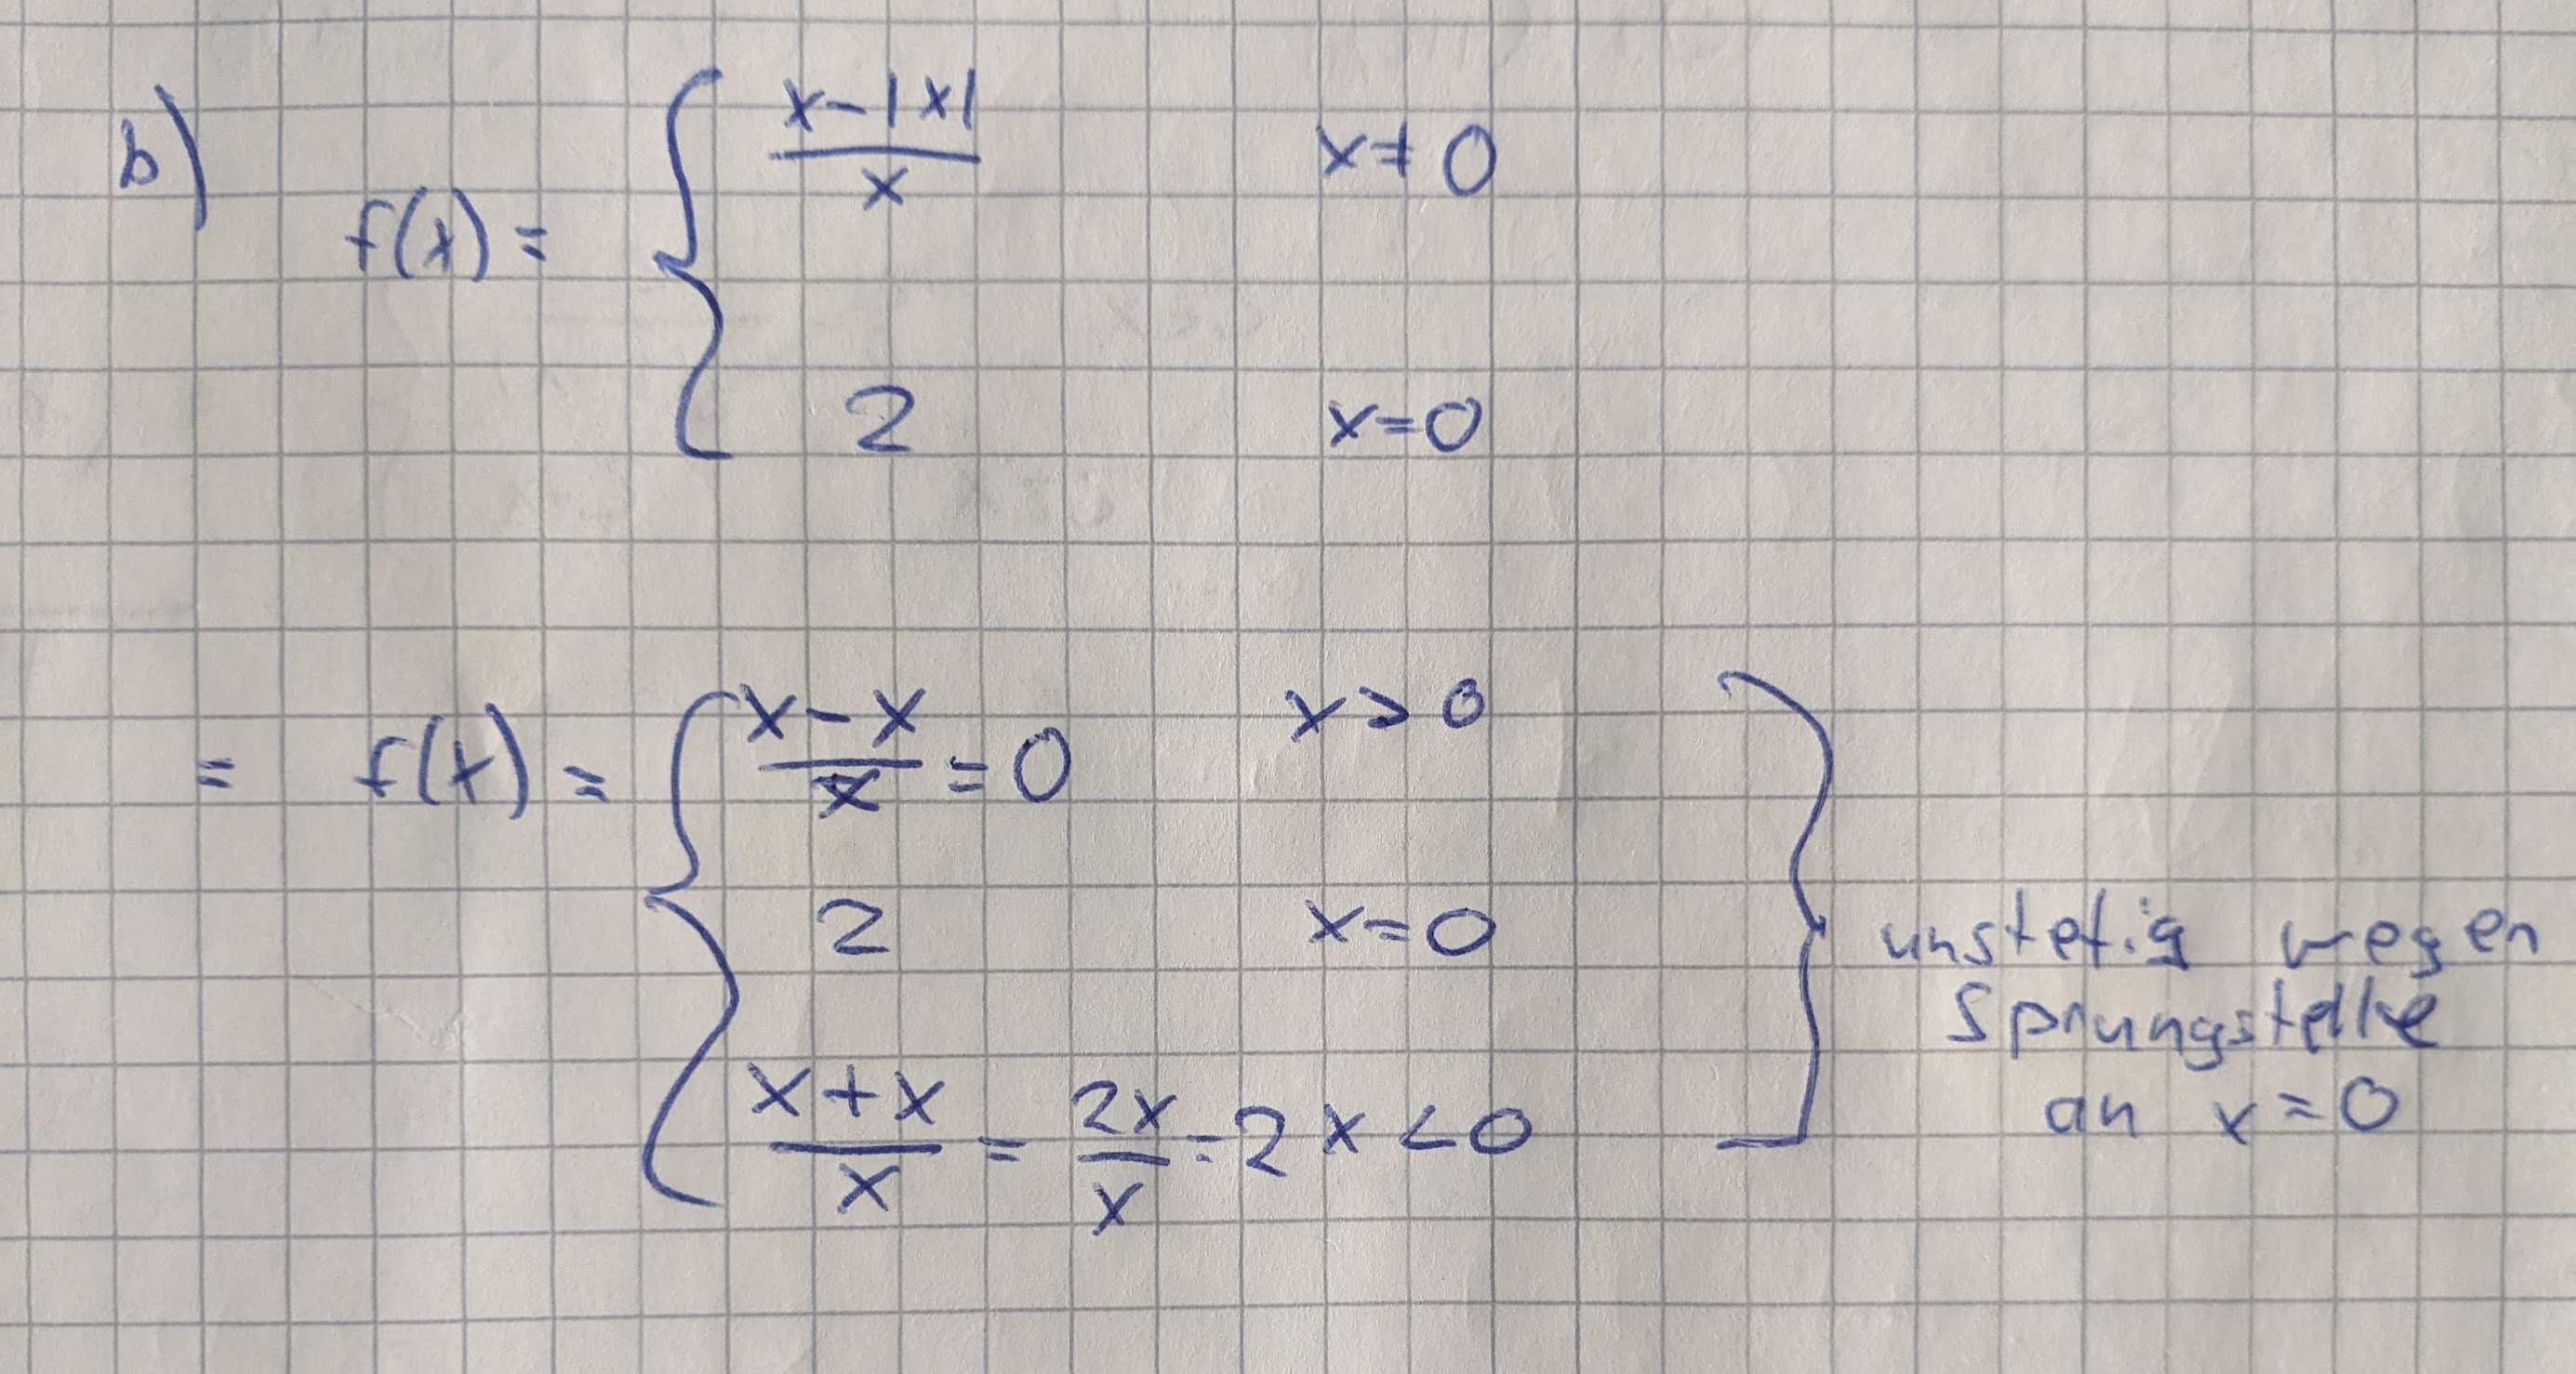 b)
f(x) = { (x-|x|)/x    x ≠ 0
2    x=0
= f(x) = { (x-x)/x = 0    x > 0
2    x=0
(x+x)/x = 2x/x = 2    x < 0
} unstetig wegen
Sprungstelle
an x=0